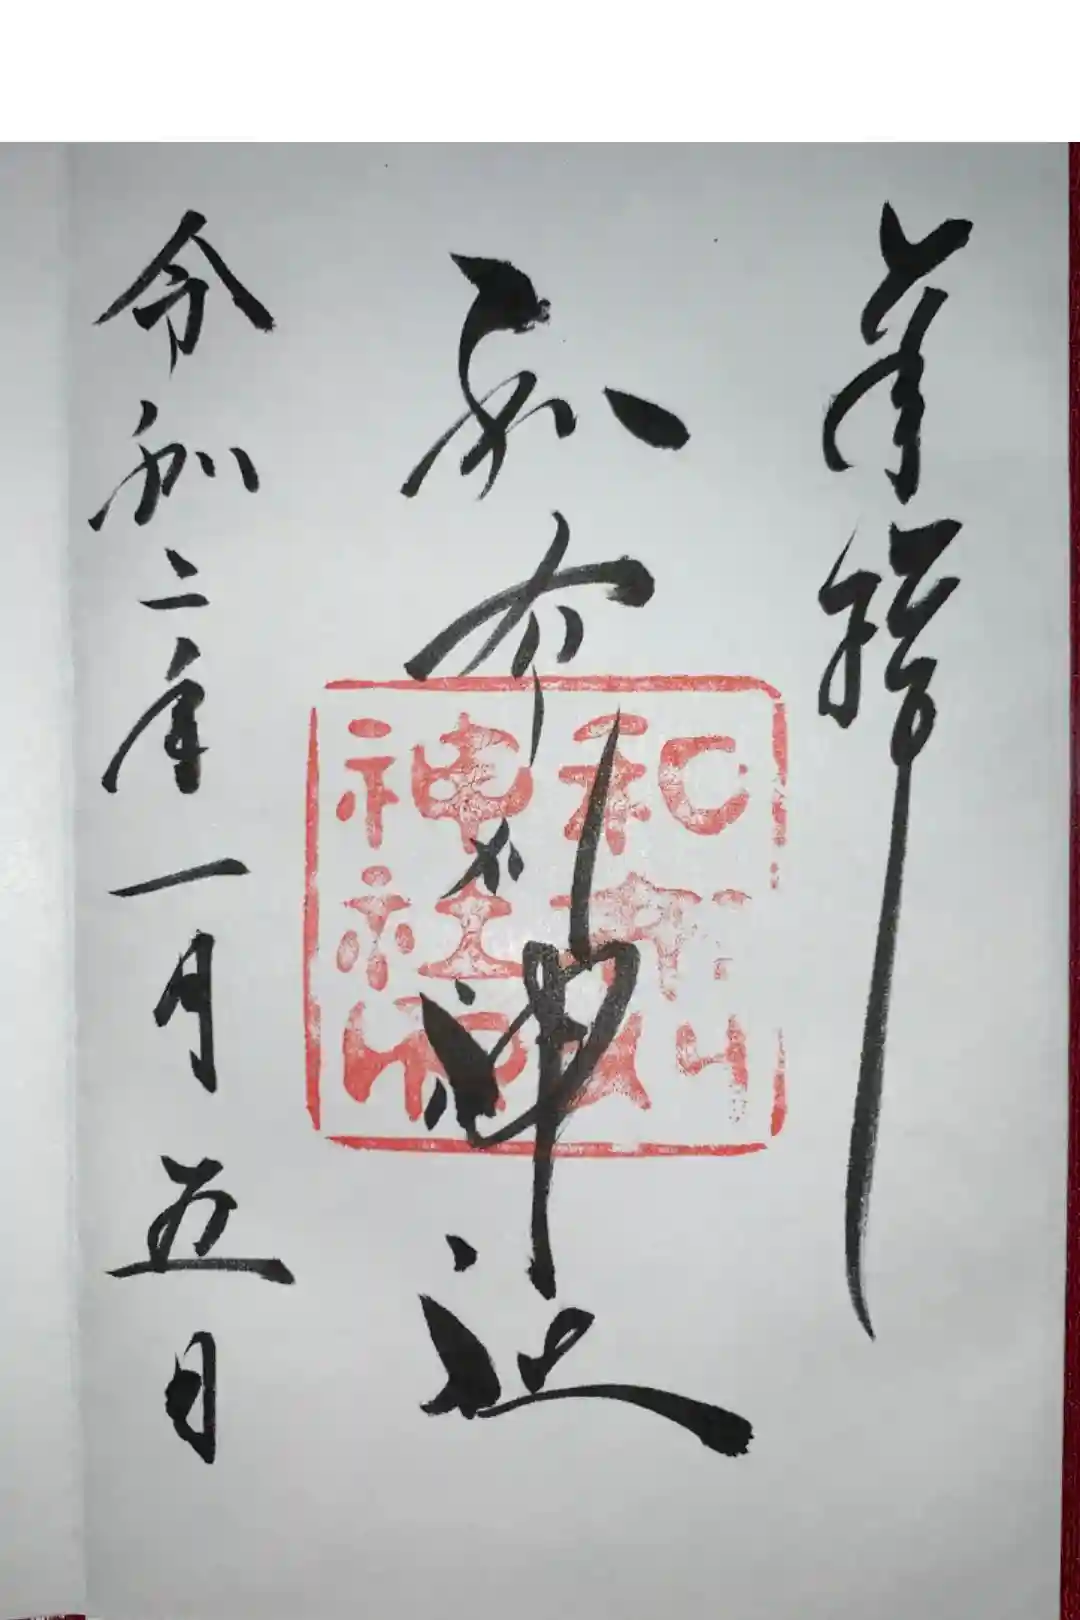 奉拝
和布刈神社
令和二年一月五日
和布刈
神社印